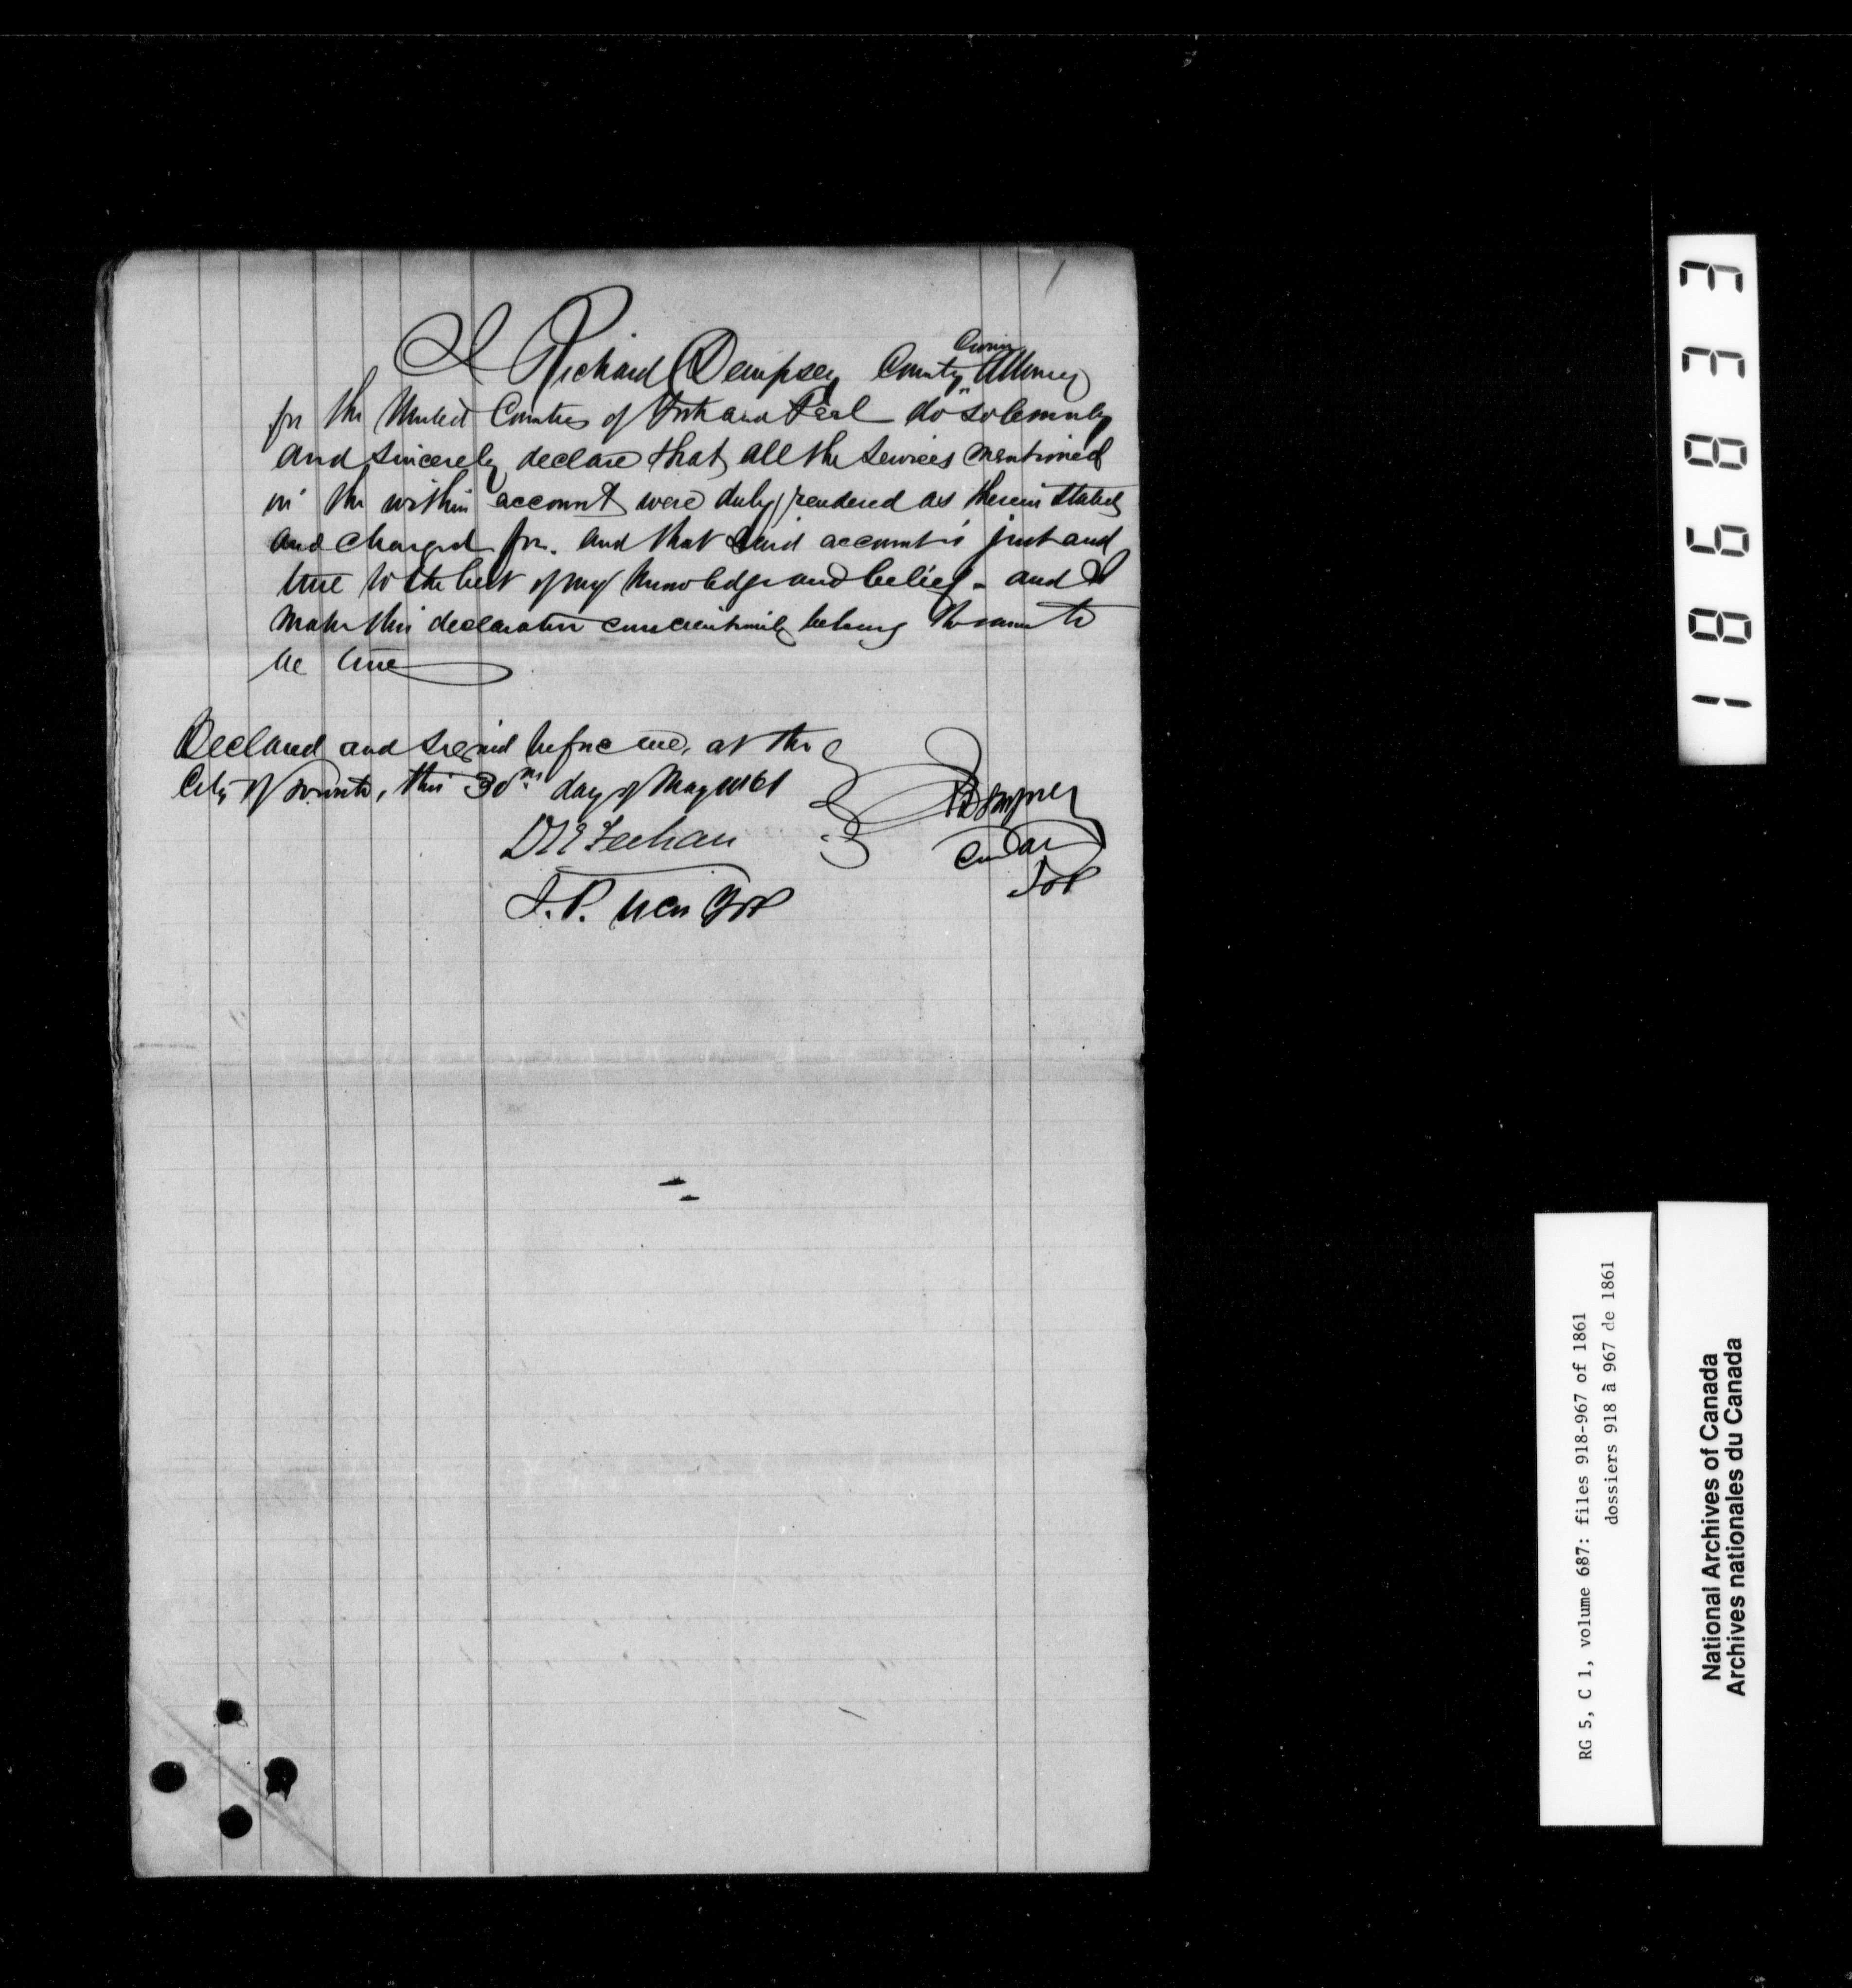 I Richard Dempsey County Crown Attorney
for the United Counties of York and Peel do solemnly
and sincerely declare that all the services mentioned
in the within account were duly rendered as therein stated
and charged for. and that said account is just and
true to the best of my knowledge and belief - and I
make this declaration conscientiously believing the same to
be true
Declared and signed before me, at the
City of Toronto, this 30th day of May 1861
RDempsey
J.P.
186833
RG 5, C 1, volume 687: files 918-967 of 1861
dossiers 918 à 967 de 1861
National Archives of Canada
Archives nationales du Canada